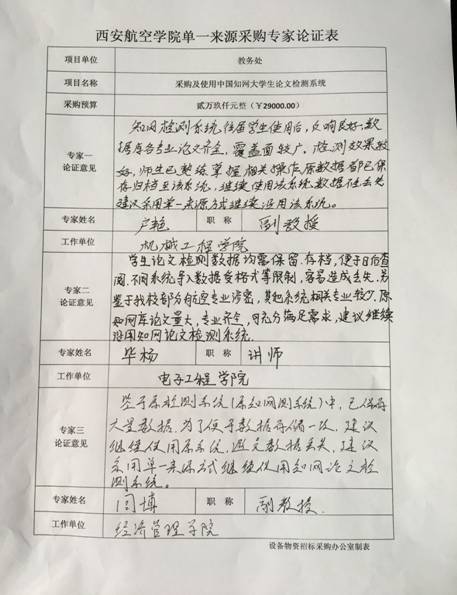 西安航空学院单一来源采购专家论证表
项目单位 教务处
项目名称 采购及使用中国知网大学生论文检测系统
采购预算 贰万玖仟元整（￥29000.00）
专家一
论证意见
知网检测系统往届学生使用后，反响良好，数
据库各专业论文齐全，覆盖面较广，检测效果较
好，师生已熟练掌握相关操作。原数据都已保
存归档至该系统，继续使用该系统数据不会丢失
建议采用单一来源方式继续沿用该系统。
专家姓名 卢艳 职 称 副教授
工作单位 机械工程学院
专家二
论证意见
学生论文检测数据均需保留、存档，便于日后查
阅，不同系统导入数据受格式等限制，容易造成丢失，另
鉴于我校部分航空专业涉密，其他系统相关专业较少，原
知网库论文量大，专业齐全，可充分满足需求，建议继续
沿用知网论文检测系统。
专家姓名 毕杨 职 称 讲师
工作单位 电子工程学院
专家三
论证意见
鉴于原检测系统（原知网测系统）中，已保存
大量数据，为了便于数据存储一致，建议
继续使用原系统，避免数据丢失，建议
采用单一来源方式继续使用知网论文检
测系统。
专家姓名 闫博 职 称 副教授
工作单位 经济管理学院
设备物资招标采购办公室制表